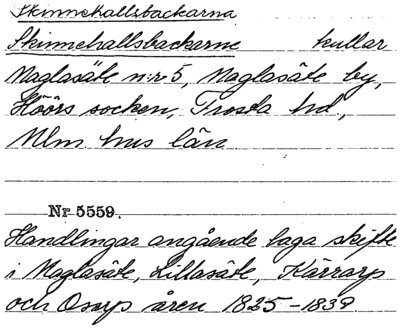 Skinnehallsbackarna
Skinnehallsbackarne kullar
Maglasäte n:r 5, Maglasäte by,
Höörs socken, Frosta hd,
Mlm. hus län
Nr 5559.
Handlingar angående laga skifte
i Maglasäte, Lillasäte, Kärrarp
och Osarp åren 1825-1839